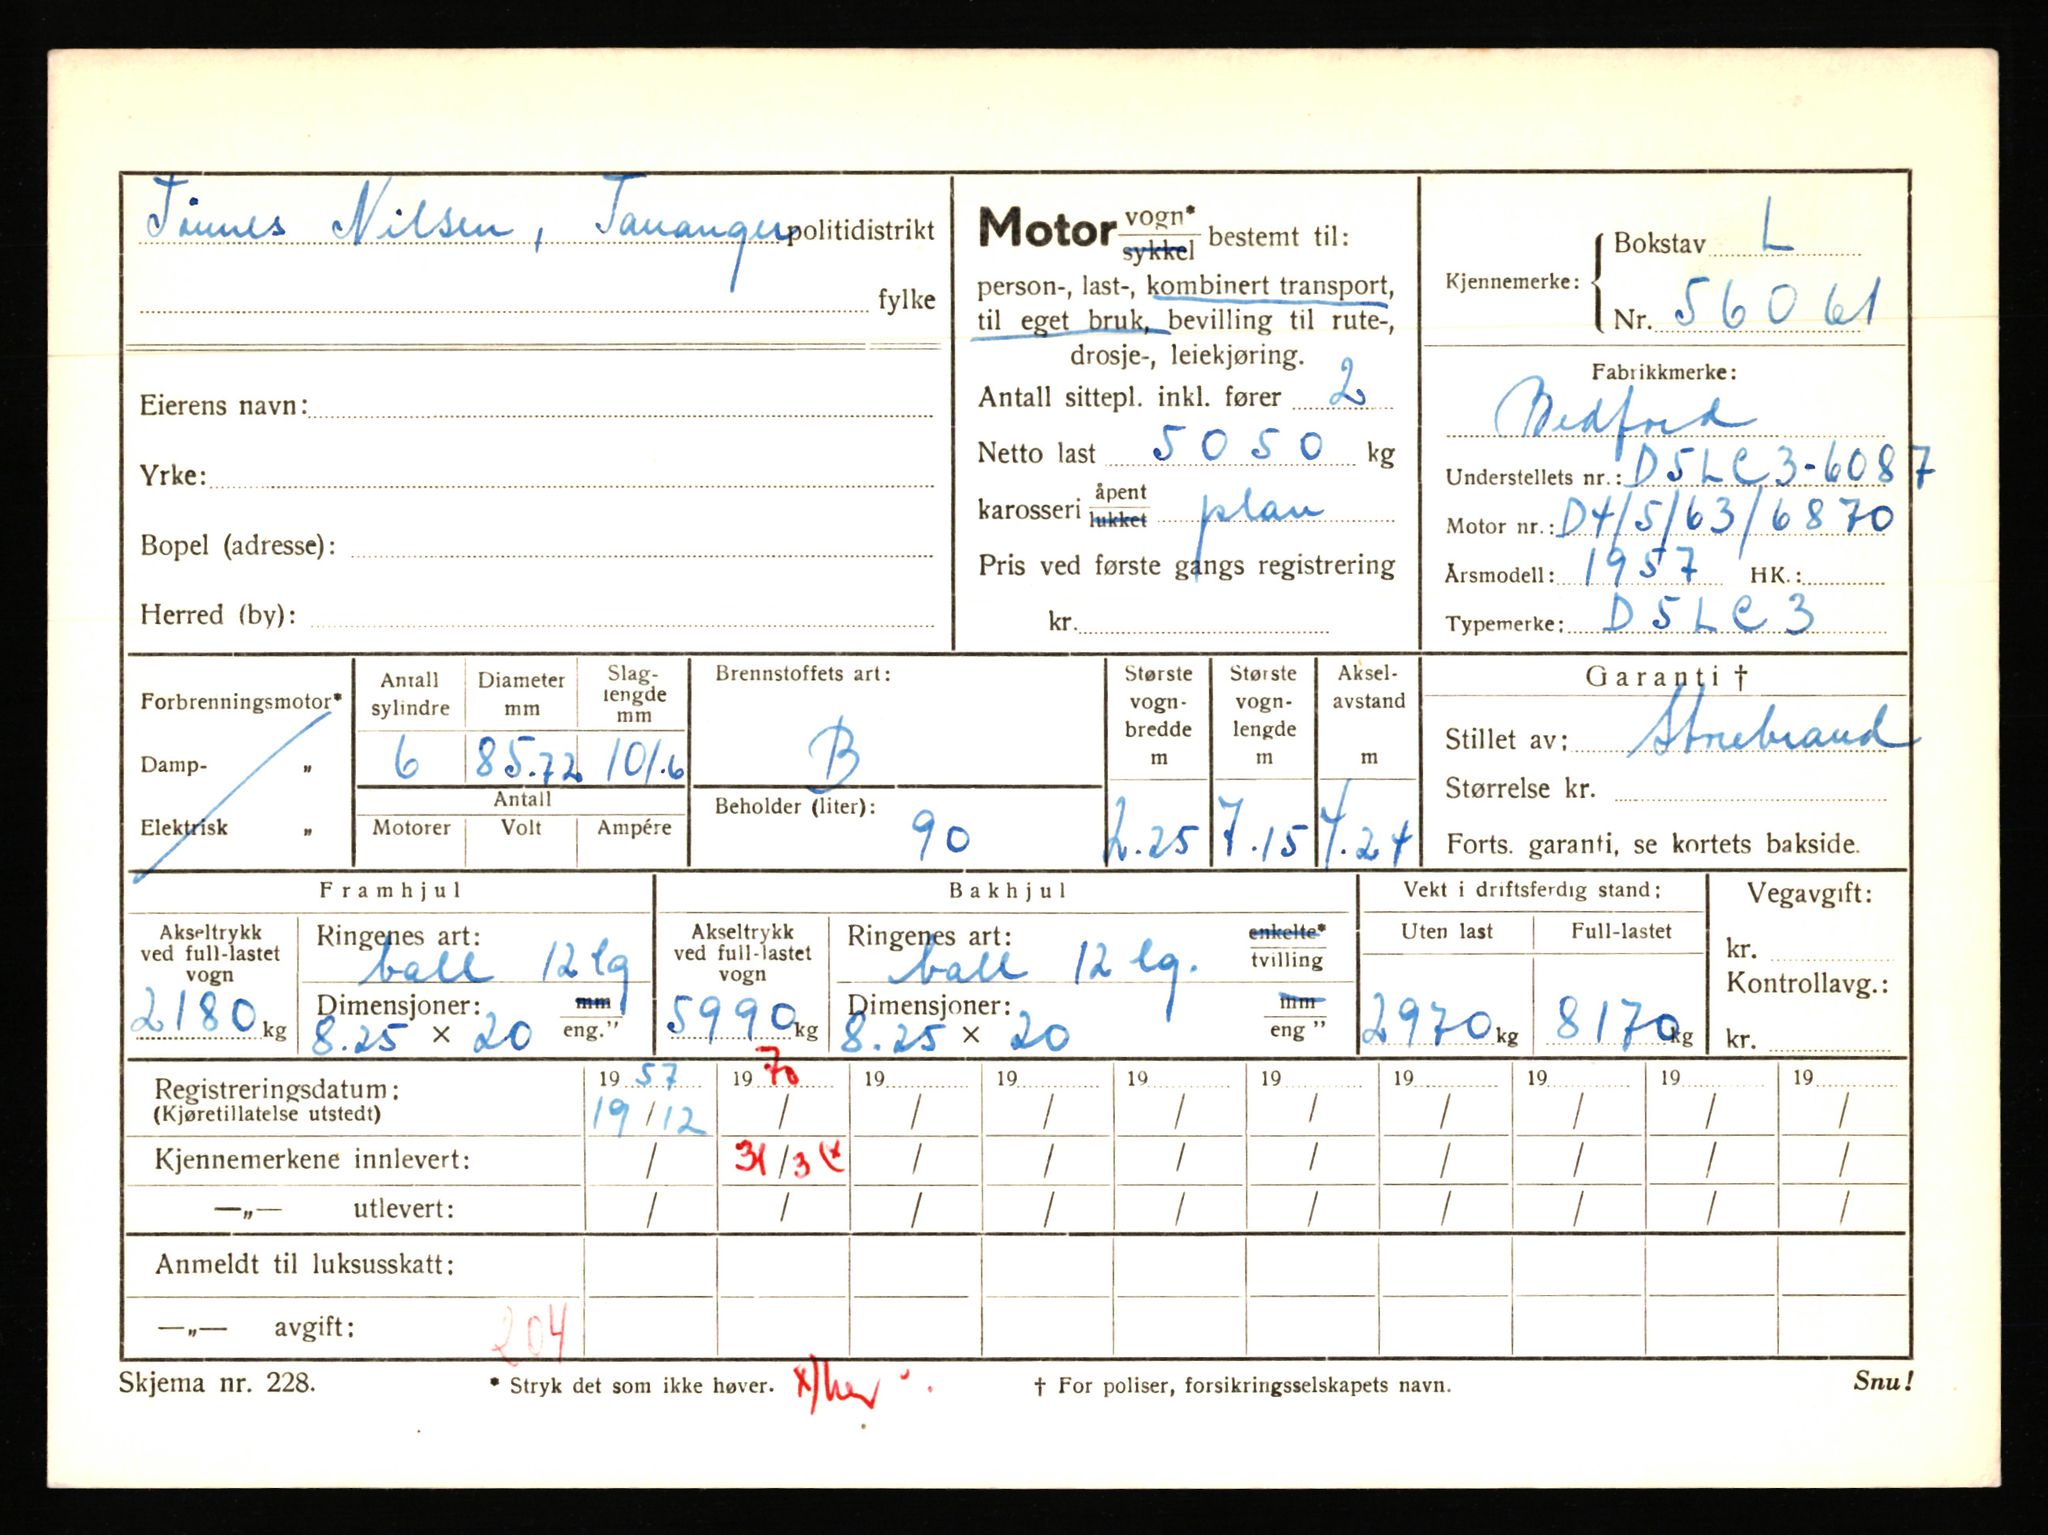 Tönnes Nilsen, Tananger politidistrikt
fylke
Eierens navn:
Yrke:
Bopel (adresse):
Herred (by):
Motor vogn* sykkel bestemt til:
person-, last-, kombinert transport,
til eget bruk, bevilling til rute-,
drosje-, leiekjøring.
Antall sittepl. inkl. fører 2
Netto last 5050 kg
karosseri åpent lukket plan
Pris ved første gangs registrering
kr.
Kjennemerke: Bokstav L
Nr. 56061
Fabrikkmerke:
Bedford
Understellets nr.: D5LC3-6087
Motor nr.: D4/5/63/6870
Årsmodell: 1957 HK.:
Typemerke: D5LC3
Forbrenningsmotor*
Damp- „
Elektrisk „
Antall sylindre
6
Diameter mm
85.72
Slag-lengde mm
101.6
Antall
Motorer Volt Ampére
Brennstoffets art:
B
Beholder (liter):
90
Største vogn-bredde m
2.25
Største vogn-lengde m
7.15
Aksel-avstand m
4.24
Garanti †
Stillet av: Storebrand
Størrelse kr.
Forts. garanti, se kortets bakside.
Framhjul
Akseltrykk ved full-lastet vogn
2180 kg
Ringenes art:
ball 12 lg
Dimensjoner: mm
8.25 × 20 eng."
Bakhjul
Akseltrykk ved full-lastet vogn
5990 kg
Ringenes art: enkelte* tvilling
ball 12 lg.
Dimensjoner: mm
8.25 × 20 eng "
Vekt i driftsferdig stand:
Uten last Full-lastet
2970 kg 8170 kg
Vegavgift:
kr.
Kontrollavg.:
kr.
Registreringsdatum: 19 57 19 70 19 19 19 19 19 19 19 19
(Kjøretillatelse utstedt) 19/12 / / / / / / / / /
Kjennemerkene innlevert: / 31/3 (x / / / / / / / /
—„— utlevert: / / / / / / / / / /
Anmeldt til luksusskatt:
—„— avgift: 204
Skjema nr. 228.
* Stryk det som ikke høver.
x)
† For poliser, forsikringsselskapets navn.
Snu!